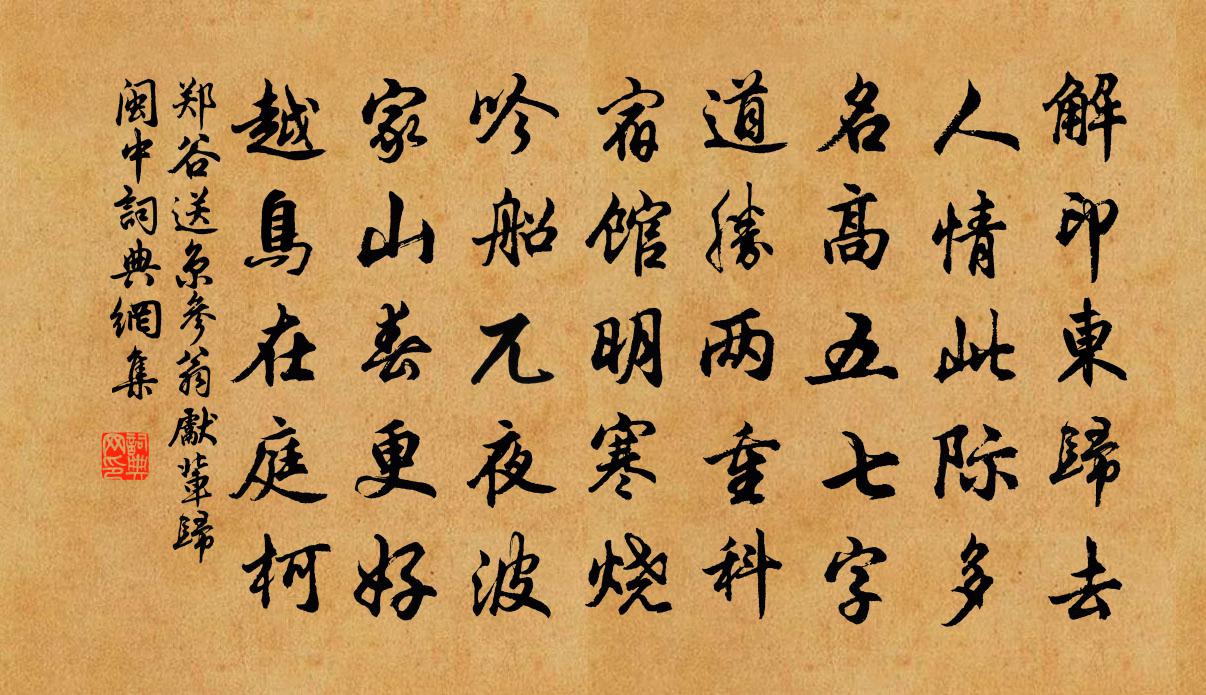 解印東歸去
人情此際多
名高五七字
道勝两重科
宿馆明寒烧
吟船兀夜波
家山春更好
越鳥在庭柯
郑谷送京參翁獻輩歸
閩中詞典網集
詞典网印